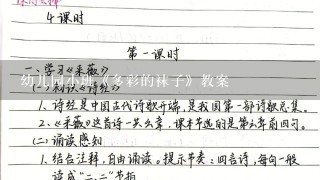 4课时
第一课时
一、学习《采薇》
幼儿园小班《多彩的袜子》教案
(一)初识《诗经》
1、诗经是中国古代诗歌开端,是我国第一部诗歌总集。
2、《采薇》这首诗一共六章,课本节选的是第六章前四句。
(二)诵读感知
1、结合注释,自由诵读。提示节奏:四言诗,每句一般
读成"二、二"节拍